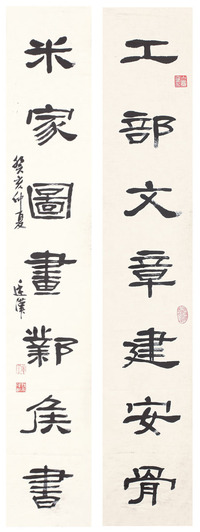 工部文章建安骨
米家圖畫鄴矦書
癸亥仲夏